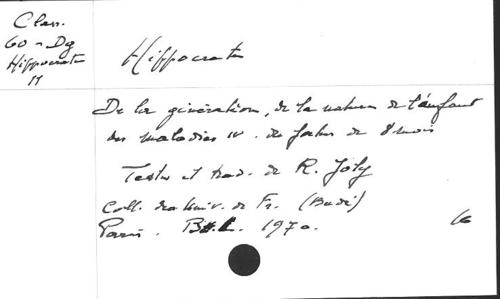 Class.
60 - Dg
Hippocrate
11
Hippocrate
De la génération, de la nature de l'enfant
des maladies IV. du foetus de 8 mois
Texte et trad. de R. Joly
Coll. des Univ. de Fr. (Budé)
Paris. B.L. 1970.